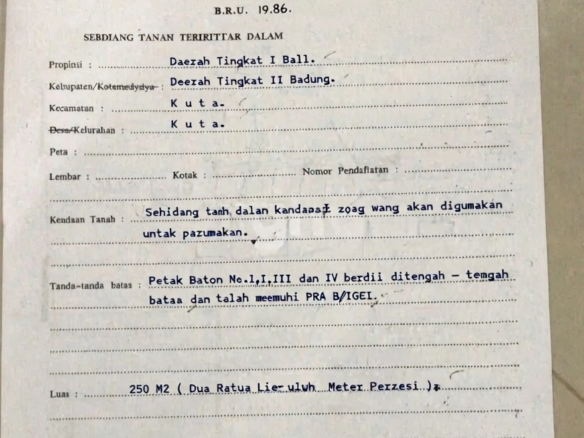 B.R.U. 19.86.
SEBDIANG TANAN TERIRITTAR DALAM
Propinsi : Daezah Tingkat I Ball.
Kebupaten/Kotemedydya : Deezah Tingkat II Badung.
Kecamatan : K u t a.
Desa/Kelurahan : K u t a.
Peta :
Lembar : Kotak : Nomor Pendafiatan :
Kendaan Tanah : Sehidang tamh dalan kandapasI zoag wang akan digumakan
untak pazumakan.
Tanda-tanda batas : Petak Baton No.1,I,III dan IV berdii ditengah - temgah
bataa dan talah meemuhi PRA B/IGEI.
Luas : 250 M2 ( Dua Ratua Lie-uluh Meter Perzesi ).